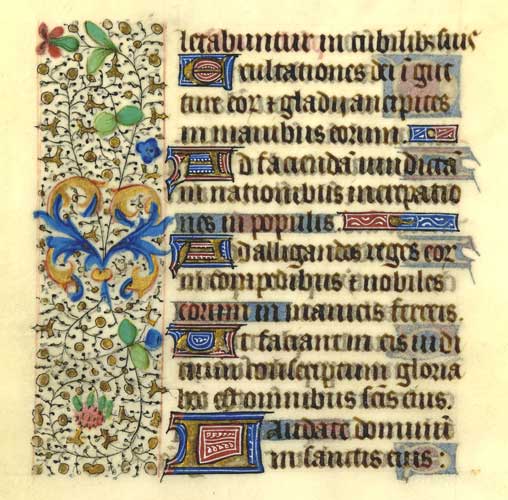 letabuntur in cubilibꝫ suis
Exultationes dei ī gut
ture eor ⁊ gladij ancipites
in manibus eorum.
Ad faciendā vindictā
in nationibus increpatio
nes in populis.
Ad alligandos reges eor
in compedibus ⁊ nobiles
eorum in manicis ferreis.
Ut faciant in eis iudi
cium conscriptum gloria
hec est omnibus scīs eius.
Laudate dominū
in sanctis eius :